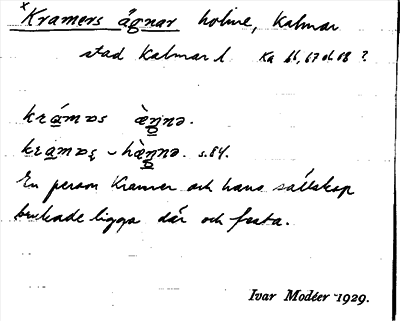 x Kramers ägnar holme, Kalmar
stad Kalmar l Ka 66, 67 el. 68 ?
krámɒs æ̀ŋnə.
kramɒȿ – hæ̀ŋnə. s. 84.
En person Kramer och hans sällskap
brukade ligga där och festa.
Ivar Modéer 1929.